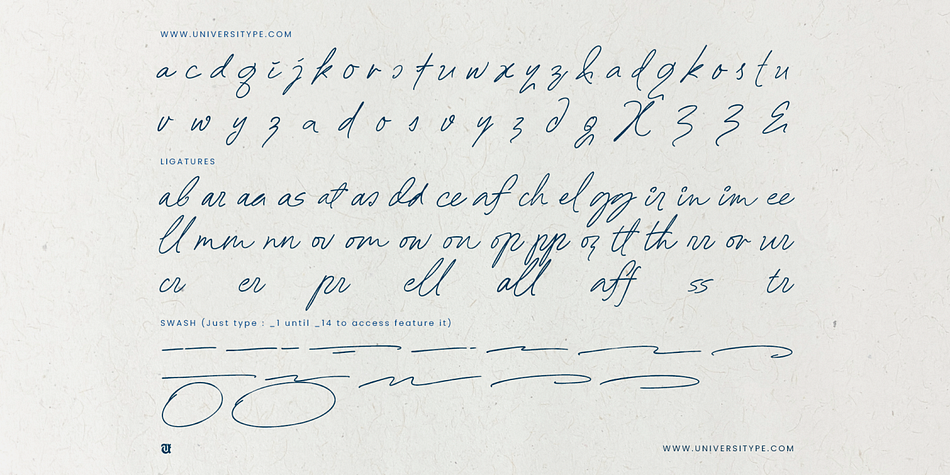 WWW.UNIVERSITYPE.COM
a c d g i j k o r s t u w x y z & a d g k o s t u
v w y z a d o s v y z d g X z z &
LIGATURES
ab ar aa as at as dd ce af ch el gg ir in im ee
ll mm nn ov om ow on op pp oz tt th rr or ur
cr er pr ell all aff ss tr
SWASH (Just type : _1 until _14 to access feature it)
U
WWW.UNIVERSITYPE.COM